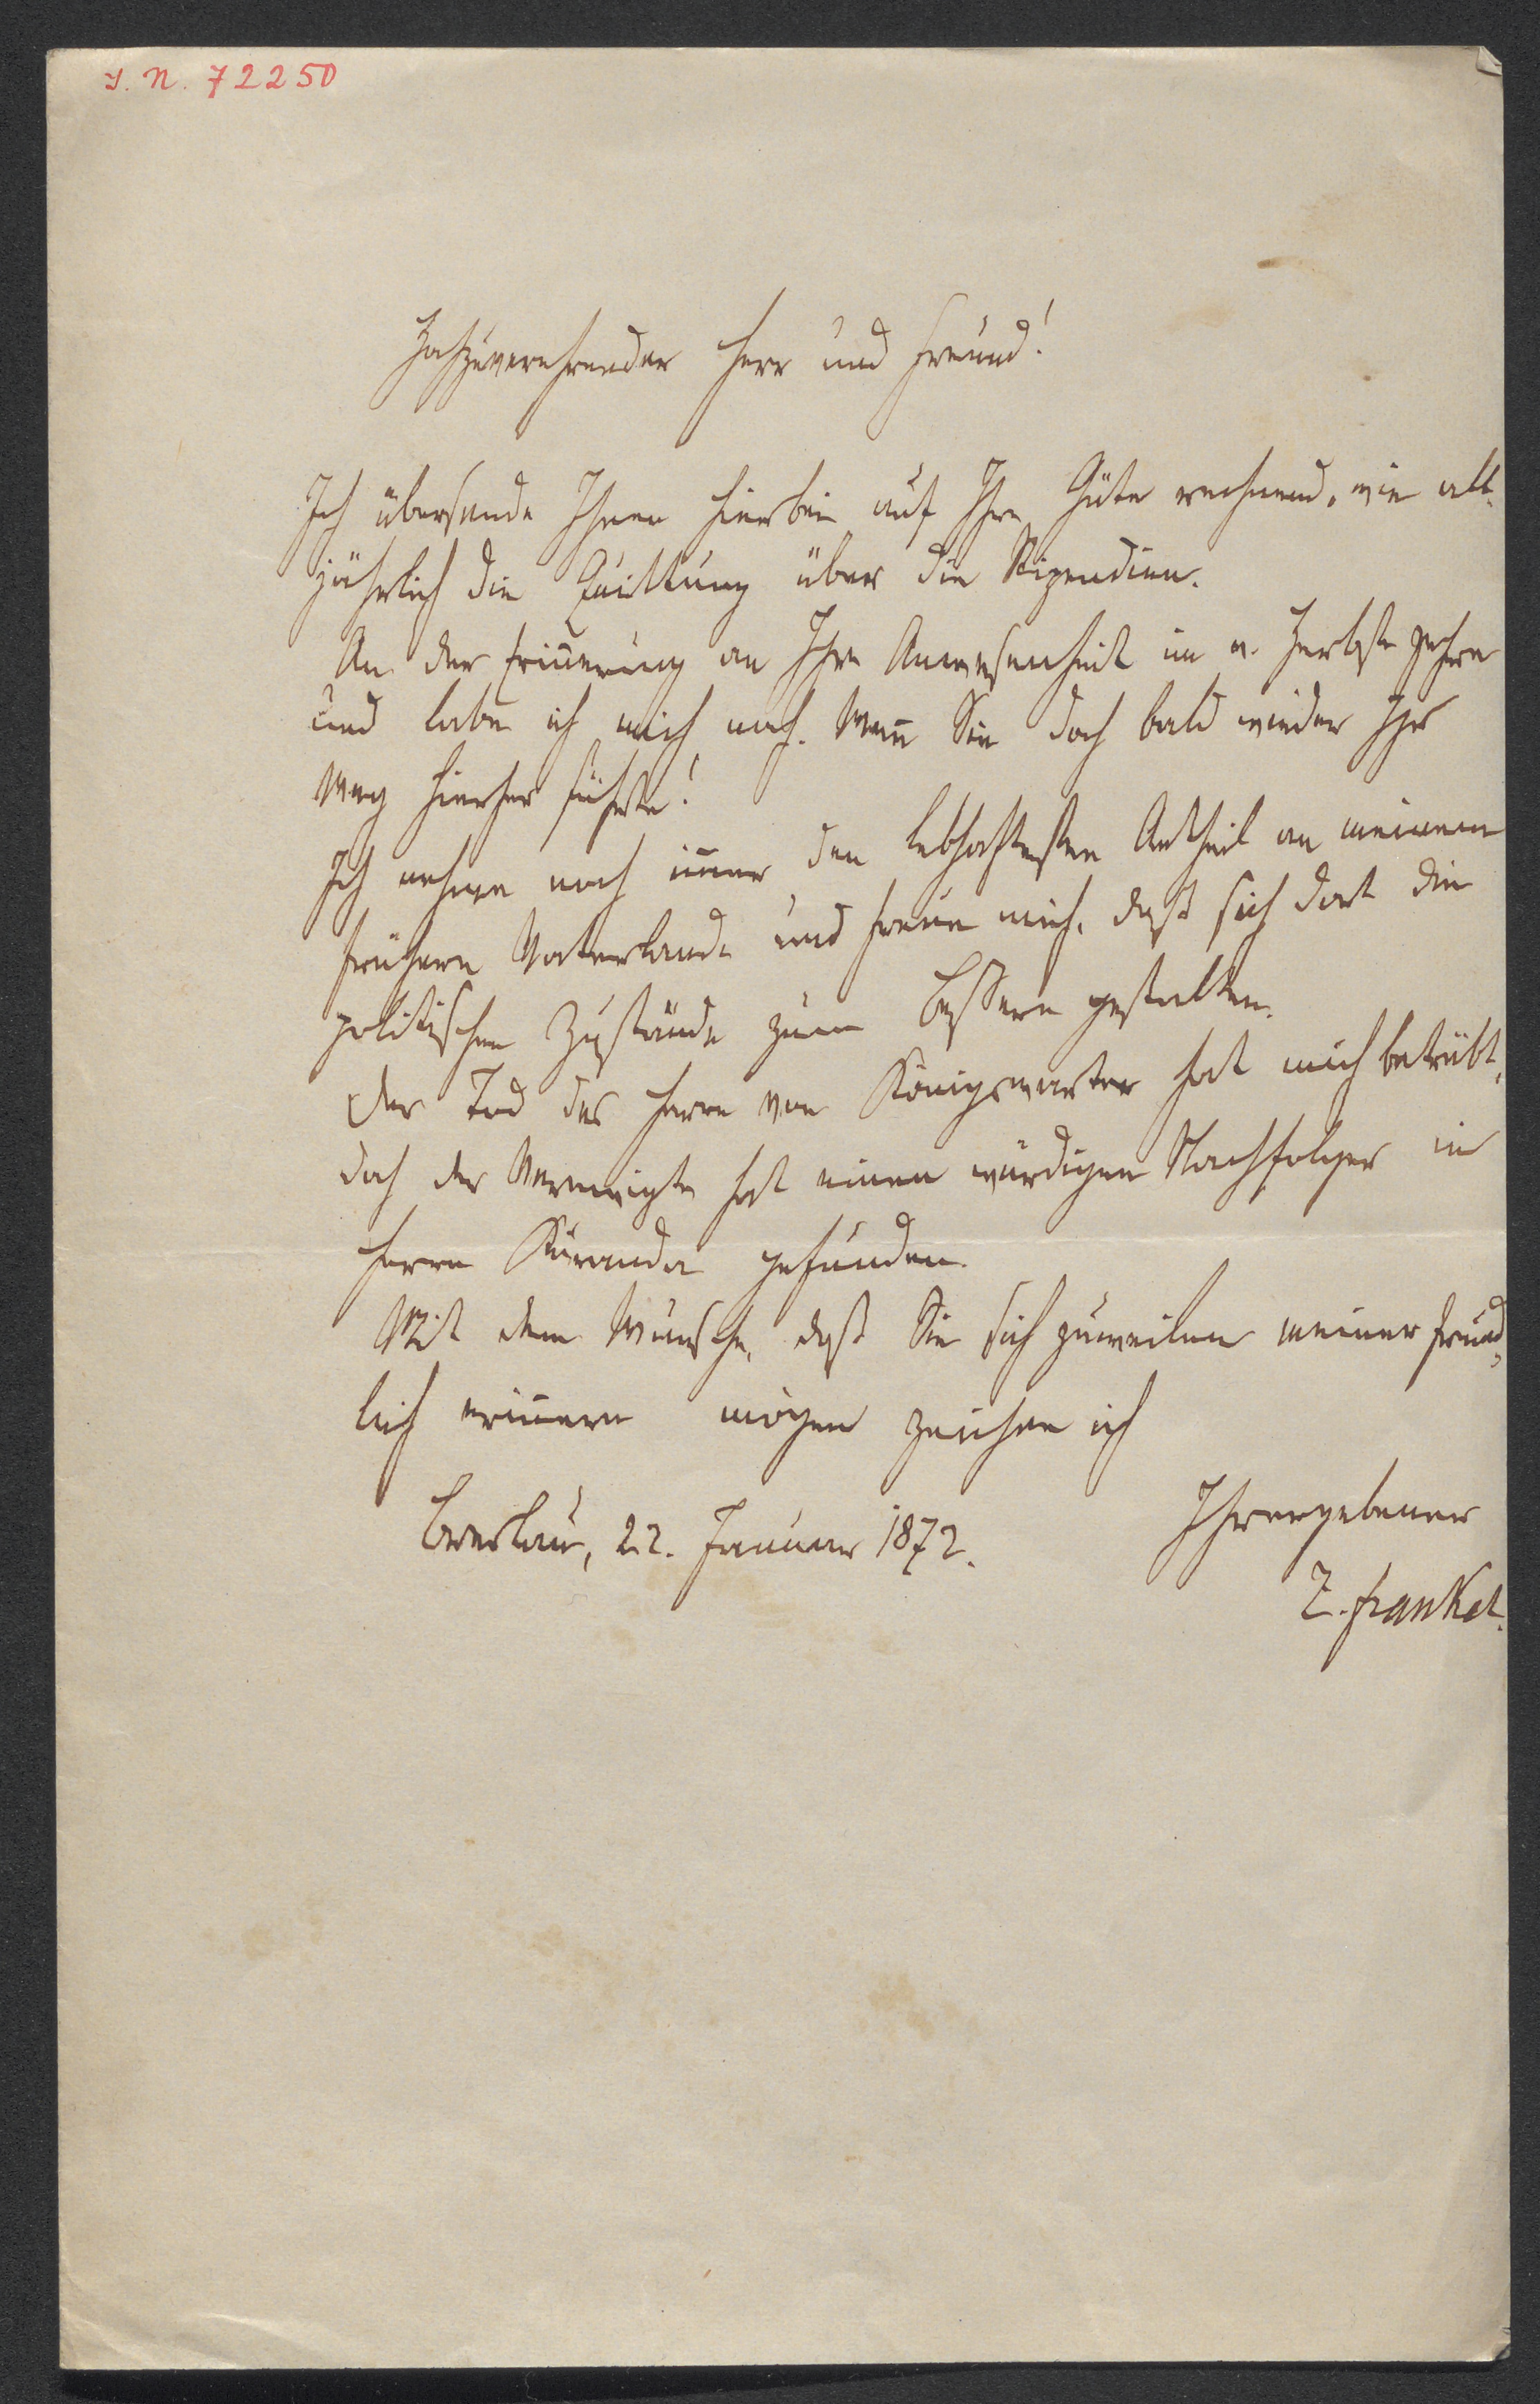 I. N. 72250
Hochzuverehrender Herr und Freund!
Ich übersende Ihnen hierbei auf Ihre Güte rechnend, wie all-
jährlich die Quittung über die Stipendien.
An der Erin̄erung an Ihre Anwesenheit im v. Herbste zehre
und labe ich mich noch. Wen̄ Sie doch bald wieder Ihr
Weg hierher führte!
Ich nehme noch im̄er den lebhaftesten Antheil an meinem
frühern Vaterlande und freue mich, daß sich dort die
politischen Zustände zum Bessern gestalten.
Der Tod des Herrn von Königswarter hat mich betrübt,
doch der Verewigte hat einen würdigen Nachfolger in
Herrn Kuranda gefunden.
Mit dem Wunsche, daß Sie sich zuweilen meiner freund-
lich erin̄ern mögen zeichne ich
Breslau, 22. Januar 1872.
Ihr ergebener
Z. Frankel.